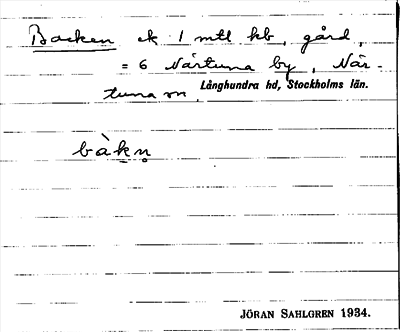 Backen ek 1 mtl kb, gård,
= 6 Närtuna by, När-
tuna sn, Långhundra hd, Stockholms län.
bàkn̥
JÖRAN SAHLGREN 1934.